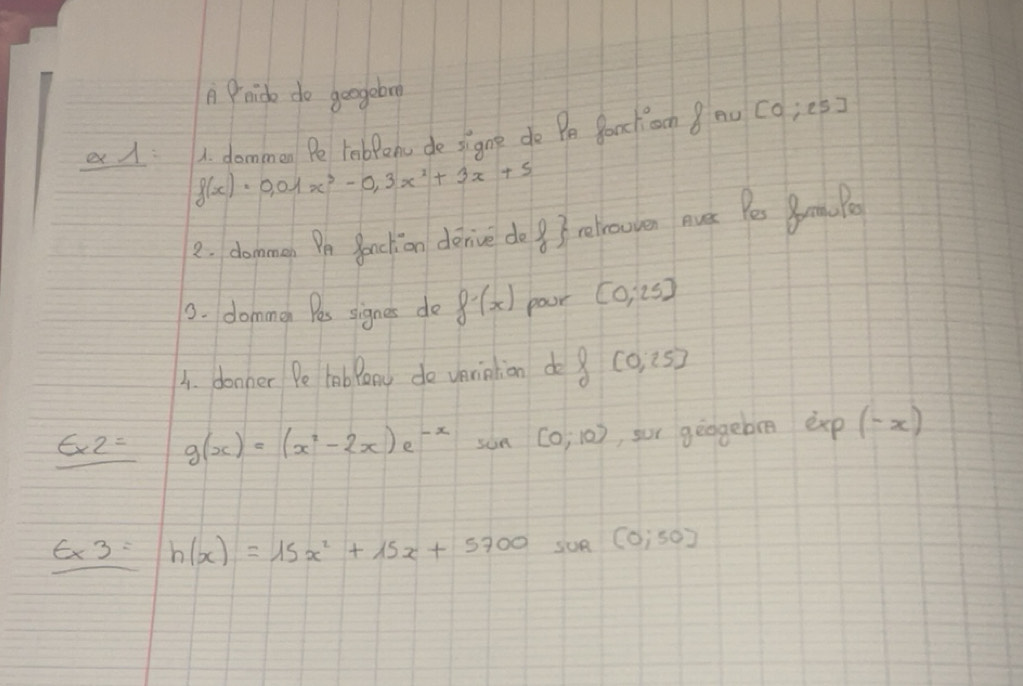 A l'aide de geogebra
ex 1: 1. donner le tableau de signe de la fonction f au [0; 25]
f(x) = 0,01x³ - 0,3x² + 3x + 5
2. donner la fonction dérivé de f } retrouver avec les formules
3. donner les signes de f'(x) pour [0; 25]
4. donner le tableau de variation de f [0, 25]
Ex 2 = g(x) = (x² - 2x)e⁻ˣ sur [0; 10], sur géogebra exp (-x)
Ex 3 = h(x) = 15x² + 15x + 5700 sur [0; 50]